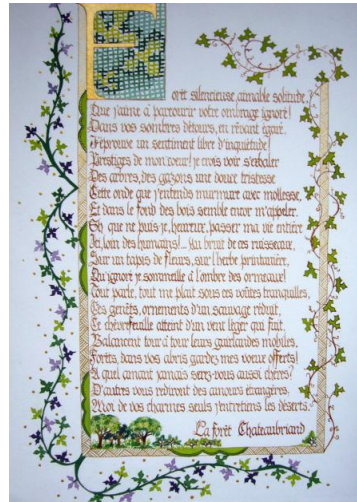 Forêt silencieuse, aimable solitude,
Que j'aime à parcourir votre ombrage ignoré!
Dans vos sombres détours, en rêvant égaré,
J'éprouve un sentiment libre d'inquiétude!
Prestiges de mon coeur! je crois voir s'exhaler
Des arbres, des gazons une douce tristesse
Cette onde que j'entends murmure avec mollesse,
Et dans le fond des bois semble encor m'appeler.
Oh que ne puis-je, heureux, passer ma vie entière
Ici, loin des humains!... Au bruit de ces ruisseaux,
Sur un tapis de fleurs, sur l'herbe printanière,
Qu'ignoré je sommeille à l'ombre des ormeaux!
Tout parle, tout me plaît sous ces voûtes tranquilles,
Ces genêts, ornements d'un sauvage réduit,
Ce chèvrefeuille atteint d'un vent léger qui fuit,
Balancent tour à tour leurs guirlandes mobiles,
Forêts, dans vos abris gardez mes voeux offerts!
A quel amant jamais serez-vous aussi chères?
D'autres vous rediront des amours étrangères,
Moi de vos charmes seuls j'entretiens les déserts.
La forêt Chateaubriand